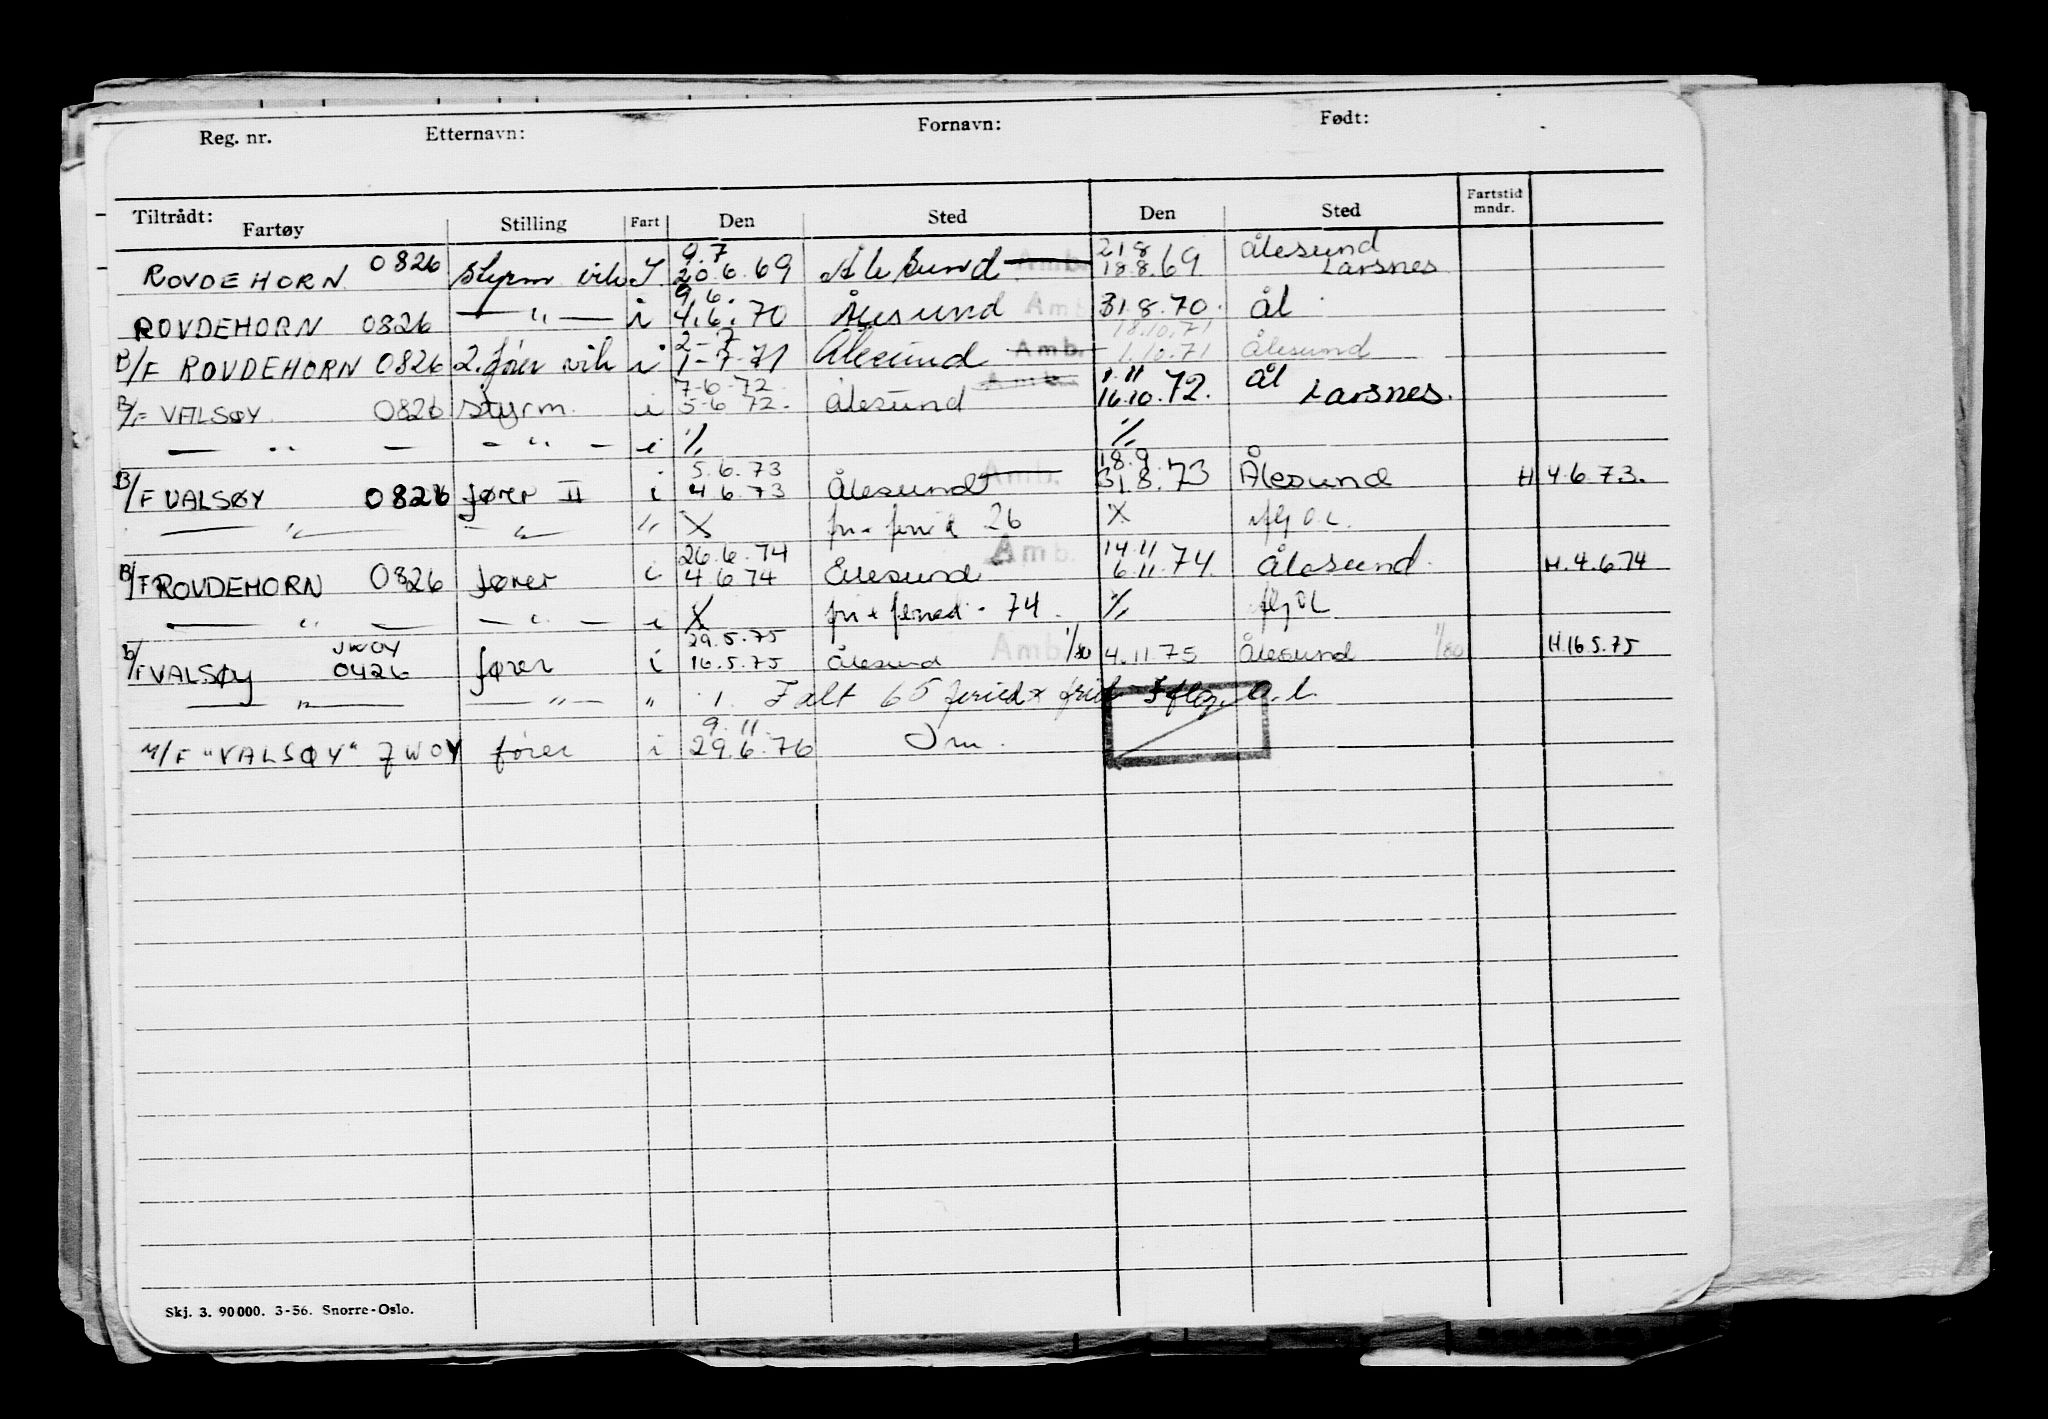 Reg. nr. Etternavn: Fornavn: Født:
Tiltrådt: Fartøy Stilling Fart Den Sted Den Sted Fartstid mndr.
9.7 21 8 Ålesund
ROVDEHORN 0826 styrm vik I 20.6.69 Ålesund Amb. 18.8.69 Larsnes
9.6.
ROVDEHORN 0826 — " — i 4.6.70 Ålesund Amb 31.8.70. Ål
2-7 18.10.71
B/F ROVDEHORN 0826 2. fører vik i 1-7-71 Ålesund Amb. 1.10.71 Ålesund
7-6-72. 1.11 Ål
B/F VALSØY 0826 styrm. i 5-6 72. Ålesund Amb. 16.10.72. Larsnes.
— " — — " — i % %
5.6.73 18.9.
B/F VALSØY 0826 fører II i 4.6.73 Ålesund Amb. 31.8.73 Ålesund H 4.6.73.
— " — — " — " X 26 X
26.6.74 Amb. 14.11
B/F ROVDEHORN 0826 fører i 4.6.74 Ålesund 6.11.74. Ålesund. H.4.6.74
— " — — " — i X 74. %
JWOY 29.5.75
B/F VALSØY 0426 fører i 16.5.75 Ålesund Amb 1/80 4.11.75 Ålesund 1/80 H.16.5.75
— " — — " — " 1. I alt 65
9.11.
M/F "VALSØY" JWOY fører i 29.6.76
Skj. 3. 90000. 3-56. Snorre-Oslo.